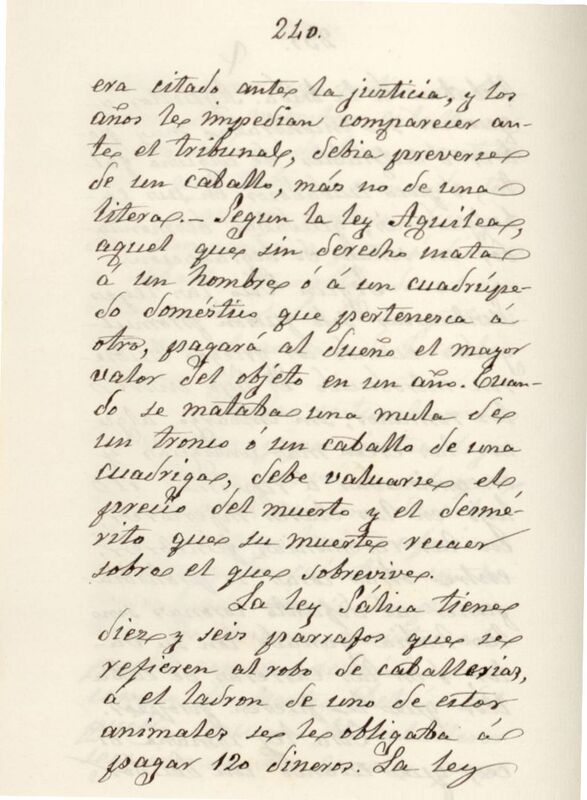 240.
era citado ante la justicia, y los
años le impedian comparecer an-
te el tribunal, debia preverse
de un caballo, más no de una
litera.- Segun la ley Aquilea,
aquel que sin derecho mata
á un hombre ó á un cuadrúpe-
do doméstico que pertenesca á
otro, pagará al dueño el mayor
valor del objeto en un año. Cuan-
do se mataba una mula de
un tronco ó un caballo de una
cuadriga, debe valuarse el
precio del muerto y el demé-
rito que su muerte recaer
sobre el que sobrevive.
La ley Sálica tiene
diez y seis párrafos que se
refieren al robo de caballerias,
á el ladron de uno de estos
animales se le obligaba á
pagar 120 dineros. La ley